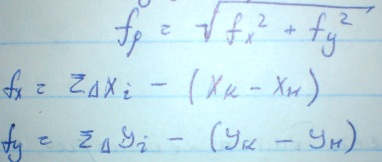 fp = √(fx² + fy²)
fx = ΣΔxi − (xк − xн)
fy = ΣΔyi − (yк − yн)